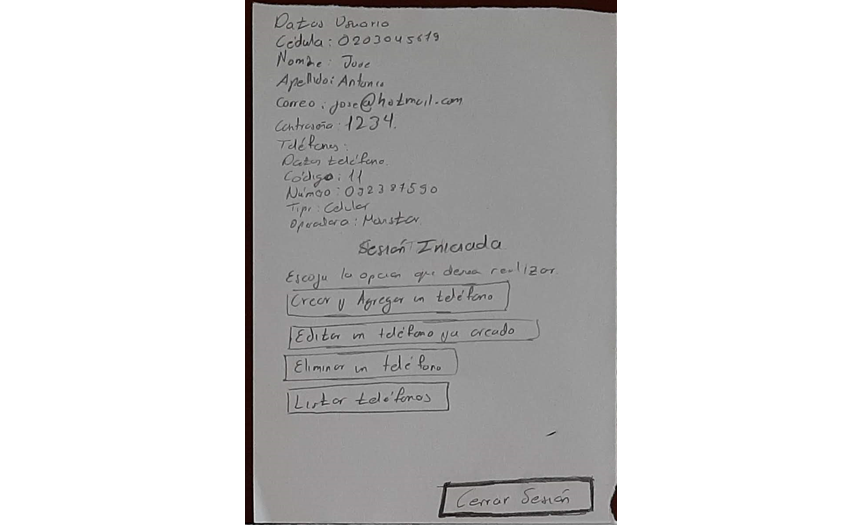 Datos Usuario
Cédula: 0203045619
Nombre: Jose
Apellido: Antonio
Correo: jose@hotmail.com
Contraseña: 1234.
Teléfonos:
Datos teléfono.
Código: 11
Número:
Tipo: Celular
Operadora: Movistar
Sesión Iniciada
Escoja la opcion que desea realizar
Crear y Agregar un teléfono
Editar un teléfono ya creado
Eliminar un teléfono
Listar teléfonos
Cerrar Sesión